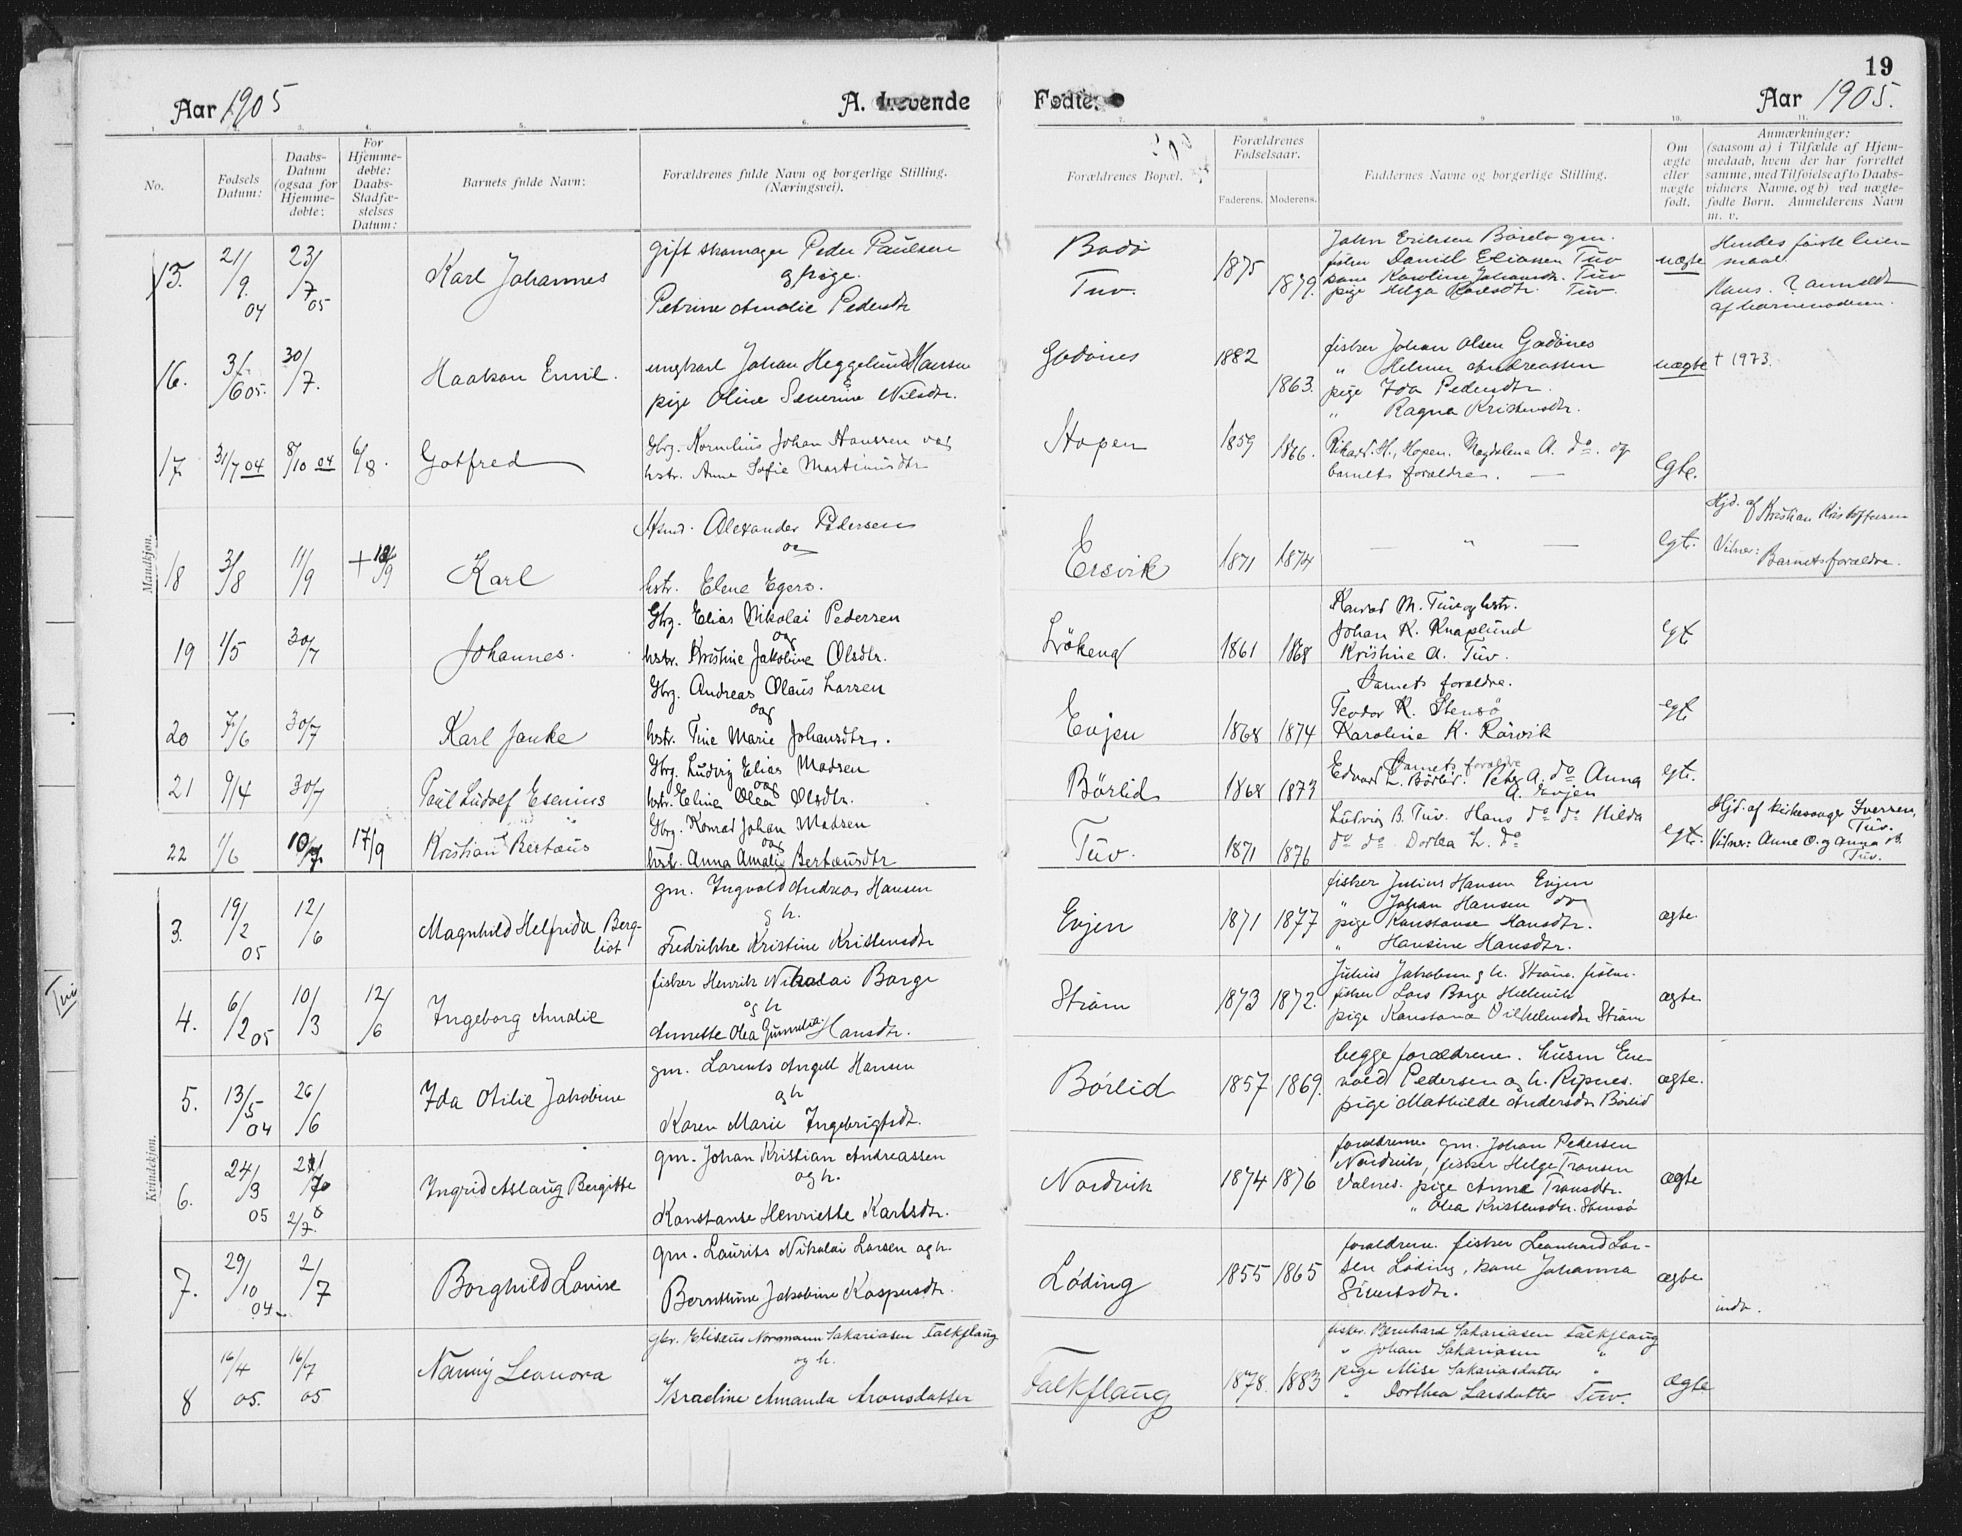 19
Aar 1905
A. Levende
Fødte.
Aar 1905.
1. 2. 3. 4. 5. 6. 7. 8 9 10. 11.
No.
Fødsels Datum:
Daabs-Datum (ogsaa for Hjemme-døbte:
For Hjemme-døbte: Daabs-Stadfæ-stelses Datum:
Barnets fulde Navn:
Forældrenes fulde Navn og borgerlige Stilling. (Næringsvei).
Forældrenes Bopæl.
Forældrenes Fødselsaar.
Faderens. Moderens.
Faddernes Navne og borgerlige Stilling.
Om ægte eller uægte født.
Anmærkninger: (saasom a) i Tilfælde af Hjem-medaab, hvem der har forrettet samme, med Tilføielse af to Daabs-vidners Navne, og b) ved uægte-fødte Børn. Anmelderens Navn m. v.
Mandkjøn.
15. 21/9 04 23/7 05 Karl Johannes
gift skomager Peder Paulsen
og pige.
Petrine Amalie Pedersdtr
Bodø
Tuv.
1875 1879.
Daniel Eliassen Tuv
kone Karoline Johansdtr. Tuv
pige Helga Tuv.
uægte
Hendes første leier-
maal
af barnemoderen.
16. 3/6 05. 30/7. Haakon Emil.
ungkarl Johan Heggelund Hansen
pige Oline Severine Nilsdtr.
Godønes
1882 1863.
fisker Johan Olsen Godønes
" Helmer Andreassen
pige Ida Pedersdtr.
" Ragna Kristensdtr.
uægte
† 1973.
17. 31/7 04 8/10 04 6/8. Gotfred
Gbrg. Kornelius Johan Hanssen og
hstr. Anne Sofie Martinusdtr
Hopen
1859 1866.
Rikard H., Hopen. Magdalena A. do. og
barnets forældre. —
Egte.
18 3/8 11/9 + Karl
Alexander Pedersen
og
hstr. Elene Egero.
Ersvik
1871 1874
— " —
egt.
Hjd. af Kristian Kristoffersen
Vitner: Barnets forældre.
19 1/5 30/7 Johannes.
Gbrg. Elias Nikolai Pedersen
og
hstr. Kristine Jakobine Olsdtr.
Løkeng
1861 1868
Konrad M. Tuv og hstr.
Johan K. Knaplund
Kristine A. Tuv.
Barnets forældre.
egt
20 7/6 30/7 Karl Janke
Gbrg. Andreas Olaus Larsen
og
hstr. Tine Marie Johansdtr.
Evjen
1868 1874
Teodor K. Stensø
Karoline K. Rørvik
Barnets forældre
egt
21 9/4 30/7 Paul Ludolf Esenius
Gbrg. Ludvig Elias Madsen
og
hstr. Eline Olea Olsdtr.
Børlid
1868 1873
Edvard L. Børlid. Peter A. do Anna
A. Evjen
egt.
22 1/6 10/7. 17/9 Kristian Bertæus
Gbrg. Konrad Johan Madsen
og
hstr. Anna Amalie Bertæusdtr
Tuv.
1871 1876
Ludvig B. Tuv. Hans do do Hilda
do do Dortea L. do
egt.
Hjd. af kirkesanger Iversen,
Tuv.
Vitner: Anne O. og Anna B.
Tuv.
Kvindekjøn.
3. 19/2 05 12/6 Magnhild Helfrida Berg-
liot
gm. Ingvald Andreas Hansen
g h.
Fredrikke Kristine Kristensdtr
Evjen
1871 1877
fisker Julius Hansen Evjen
" Johan Hansen do
pige Konstanse Hansdtr.
" Hansine Hansdtr.
ægte
4. 6/2 05 10/3 12/6 Ingeborg Amalie
fisker Henrik Nikolai Borge
og h
Annette Olea Gunnelia Hansdtr.
Strøm
1873 1872.
Julius Jakobsen g h. Strøm. fisker.
fisker Lars Borge
pige Konstanse Vilhelmsdtr Strøm
ægte
5. 13/5 04 26/6 Ida Otilie Jakobine
gm. Lorents Angell Hansen
og h
Karen Marie Ingebrigtsdtr.
Børlid
1857 1869.
begge forældrene. husm Ene-
vold Pedersen og h. Ripnes.
pige Mathilde Andersdtr Børlid
ægte.
6. 24/3 05 2/7. Ingrid Aslaug Bergitte
gm. Johan Kristian Andreassen
og h.
Konstanse Henriette Karlsdtr.
Nordvik
1874 1876
forældrene gm. Johan Pedersen
Nordvik, fisker Helge Tronsen
Valnes. pige Anna Tronsdtr.
" Olea Kristensdtr. Stensø
ægte
7. 29/10 04 2/7 Borghild Lovise
gm. Laurits Nikolai Larsen og h.
Berntine Jakobine Kaspersdtr.
Løding
1855 1865
forældrene. fisker Leonhard Lar-
sen Løding, kone Johanna
Sivertsdtr.
ægte
indr.
8 16/4 05. 16/7 05 Nanny Leonora
gbr. Eliseus Normann Sakariasen Falkflaug
og h.
Israeline Amanda Aronsdatter
Falkflaug
1878. 1883
fisker. Bernhard Sakariasen Falkflaug
" Johan Sakariasen "
pige Mise Sakariasdatter "
" Dorthea Larsdatter Tuv.
ægte